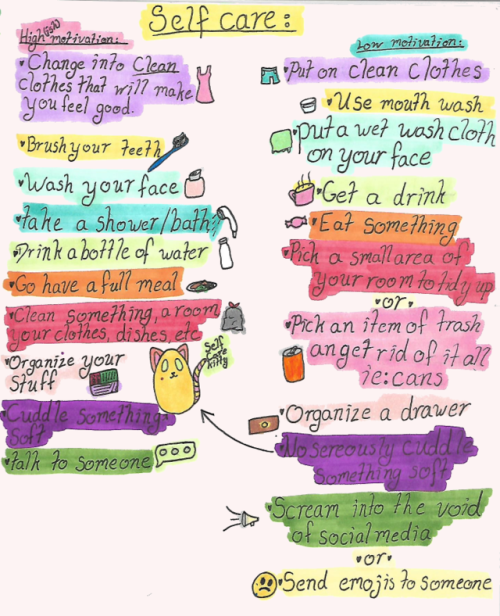 Self care:
Good
High motivation:
Change into Clean
clothes that will make
you feel good.
Brush your teeth
Wash your face
take a shower/bath
Drink a bottle of water
Go have a full meal
Clean something, a room
your clothes, dishes, etc
Organize your
stuff
Cuddle something
soft
talk to someone
Self
care
kitty
Low motivation:
Put on clean clothes
Use mouth wash
put a wet wash cloth
on your face
Get a drink
Eat something
Pick a small area of
your room to tidy up
or
Pick an item of trash
an get rid of it all
ie: cans
Organize a drawer
No sereously cuddle
something soft
Scream into the void
of social media
or
Send emojis to someone